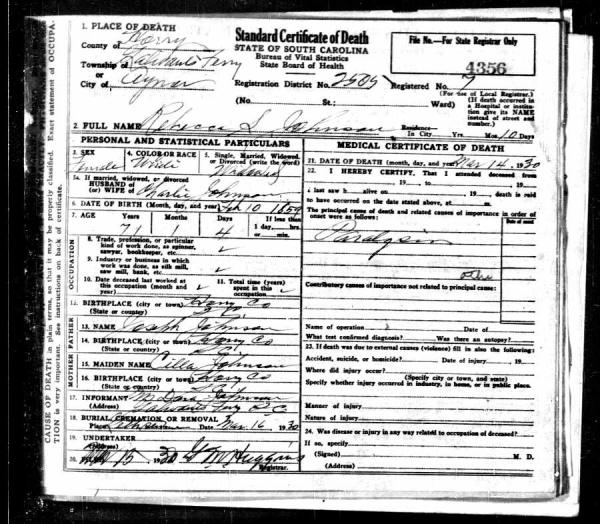 1. PLACE OF DEATH
County of Horry
Township of Galivants Ferry
or
City of Aynor
Standard Certificate of Death
STATE OF SOUTH CAROLINA
Bureau of Vital Statistics
State Board of Health
File No.—For State Registrar Only
4356
Registration District No. 2505 Registered No. 7
(For use of Local Registrar.)
(No. St.; Ward)
(If death occurred in a Hospital or institution give its NAME instead of street and number.)
2. FULL NAME Rebecca S. Johnson Residence In City Yrs. Mos. 10 Days
PERSONAL AND STATISTICAL PARTICULARS
3. SEX Female
4. COLOR or RACE White
5. Single, Married, Widowed, or Divorced (write the word)
5a. If married, widowed, or divorced
HUSBAND of
(or) WIFE of Charlie Johnson
6. DATE OF BIRTH (Month, day, and year) Feb 10 1859
7. AGE Years Months Days If less than 1 day, hrs. or min.
71 1 4
OCCUPATION
8. Trade, profession, or particular kind of work done, as spinner, sawyer, bookkeeper, etc.
9. Industry or business in which work was done, as silk mill, saw mill, bank, etc.
10. Date deceased last worked at this occupation (month and year)
11. Total time (years) spent in this occupation
12. BIRTHPLACE (city or town) Horry Co
(State or country) S. C.
FATHER
13. NAME Joseph Johnson
14. BIRTHPLACE (city or town) Horry Co
(State or country) S. C.
MOTHER
15. MAIDEN NAME Cilla Johnson
16. BIRTHPLACE (city or town) Horry Co
(State or country)
17. INFORMANT Johnson
(Address) Galivants Ferry S. C.
18. BURIAL, CREMATION, OR REMOVAL
Place Date Mar. 16 1930
19. UNDERTAKER
(Address)
20. 15, 1930 Huggins
Registrar.
MEDICAL CERTIFICATE OF DEATH
21. DATE OF DEATH (month, day, and year) Mar 14, 1930
22. I HEREBY CERTIFY, That I attended deceased from
, 19 , to , 19
I last saw h alive on , 19 , death is said
to have occurred on the date stated above, at m.
The principal cause of death and related causes of importance in order of onset were as follows:
Date of onset
Paralysis
Contributory causes of importance not related to principal cause:
Name of operation Date of
What test confirmed diagnosis? Was there an autopsy?
23. If death was due to external causes (violence) fill in also the following:
Accident, suicide, or homicide? Date of injury , 19
Where did injury occur?
(Specify city or town, and state)
Specify whether injury occurred in industry, in home, or in public place.
Manner of injury
Nature of injury
24. Was disease or injury in any way related to occupation of deceased?
If so, specify
(Signed) M. D.
(Address)
CAUSE OF DEATH in plain terms, so that it may be properly classified. Exact statement of OCCUPA-
TION is very important. See instructions on back of certificate.